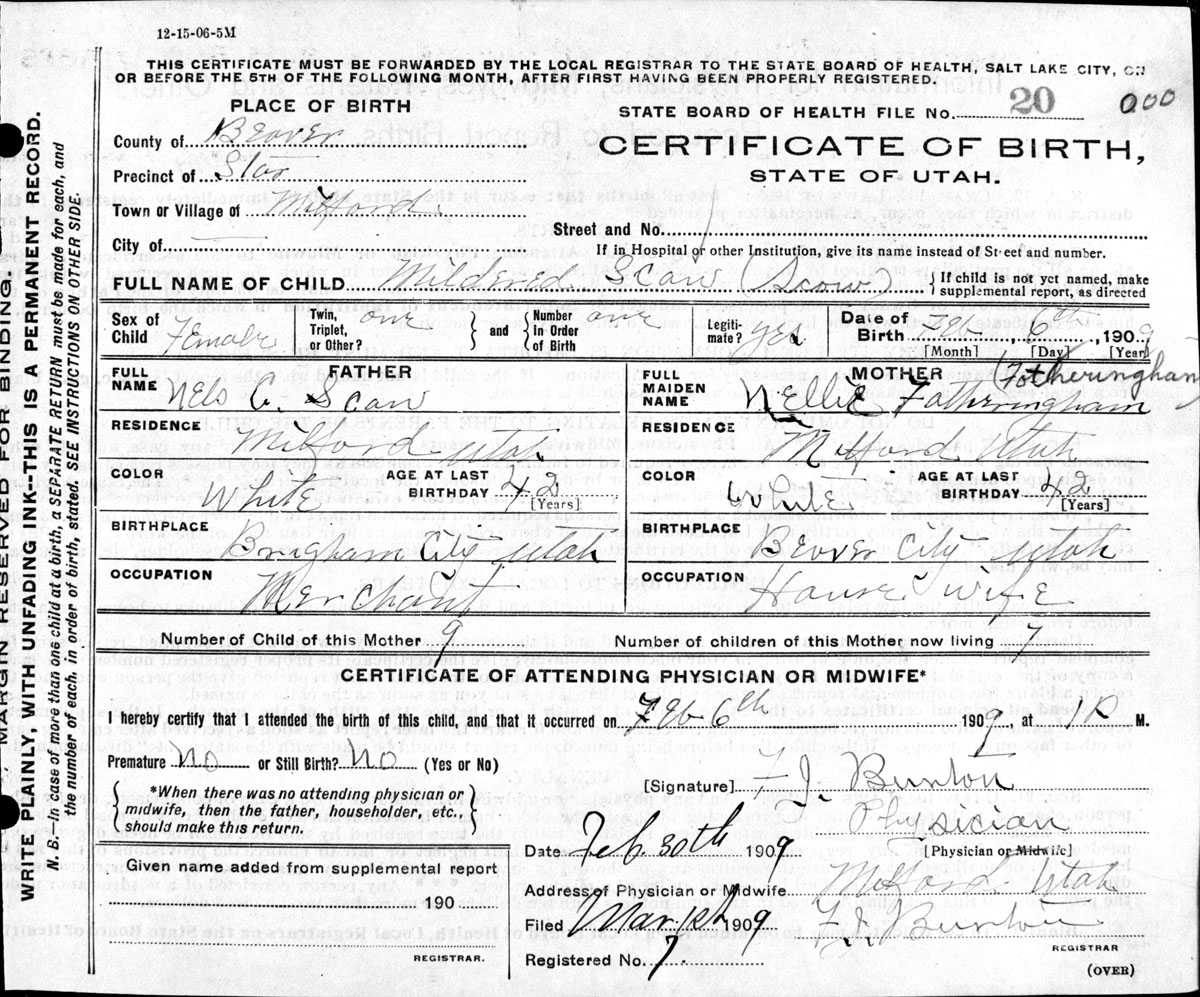 12-15-06-5M
THIS CERTIFICATE MUST BE FORWARDED BY THE LOCAL REGISTRAR TO THE STATE BOARD OF HEALTH, SALT LAKE CITY, ON
OR BEFORE THE 5TH OF THE FOLLOWING MONTH, AFTER FIRST HAVING BEEN PROPERLY REGISTERED.
PLACE OF BIRTH
STATE BOARD OF HEALTH FILE No. 20 000
County of Beaver
CERTIFICATE OF BIRTH,
STATE OF UTAH.
Precinct of Star
Town or Village of Milford
Street and No.
City of
If in Hospital or other Institution, give its name instead of Street and number.
FULL NAME OF CHILD Mildred Scow (Scow) { If child is not yet named, make
supplemental report, as directed
Sex of Child Female Twin, Triplet, or Other? one } and { Number in Order of Birth one Legitimate? yes Date of Birth Feb. 6th, 1909
[Month] [Day] [Year]
FATHER
MOTHER (Fotheringham)
FULL NAME Nels C. Scow
FULL MAIDEN NAME Nellie Fotheringham
RESIDENCE Milford Utah
RESIDENCE Milford, Utah
COLOR White AGE AT LAST BIRTHDAY 42 [Years]
COLOR White AGE AT LAST BIRTHDAY 42 [Years]
BIRTHPLACE Brigham City Utah
BIRTHPLACE Beaver City Utah
OCCUPATION Merchant
OCCUPATION House wife
Number of Child of this Mother 9 Number of children of this Mother now living 7
CERTIFICATE OF ATTENDING PHYSICIAN OR MIDWIFE*
I hereby certify that I attended the birth of this child, and that it occurred on Feb 6th 1909, at 1 P M.
Premature No or Still Birth? No (Yes or No)
*When there was no attending physician or
midwife, then the father, householder, etc.,
should make this return.
[Signature] F. J. Burton
Physician
[Physician or Midwife]
Date Feb. 30th 1909
Given name added from supplemental report
190
REGISTRAR.
Address of Physician or Midwife Milford Utah
Filed Mar. 1st 1909 F. J. Burton
REGISTRAR
Registered No. 7.
(OVER)
MARGIN RESERVED FOR BINDING.
WRITE PLAINLY, WITH UNFADING INK—THIS IS A PERMANENT RECORD.
N. B.—In case of more than one child at a birth, a SEPARATE RETURN must be made for each, and
the number of each, in order of birth, stated. SEE INSTRUCTIONS ON OTHER SIDE.